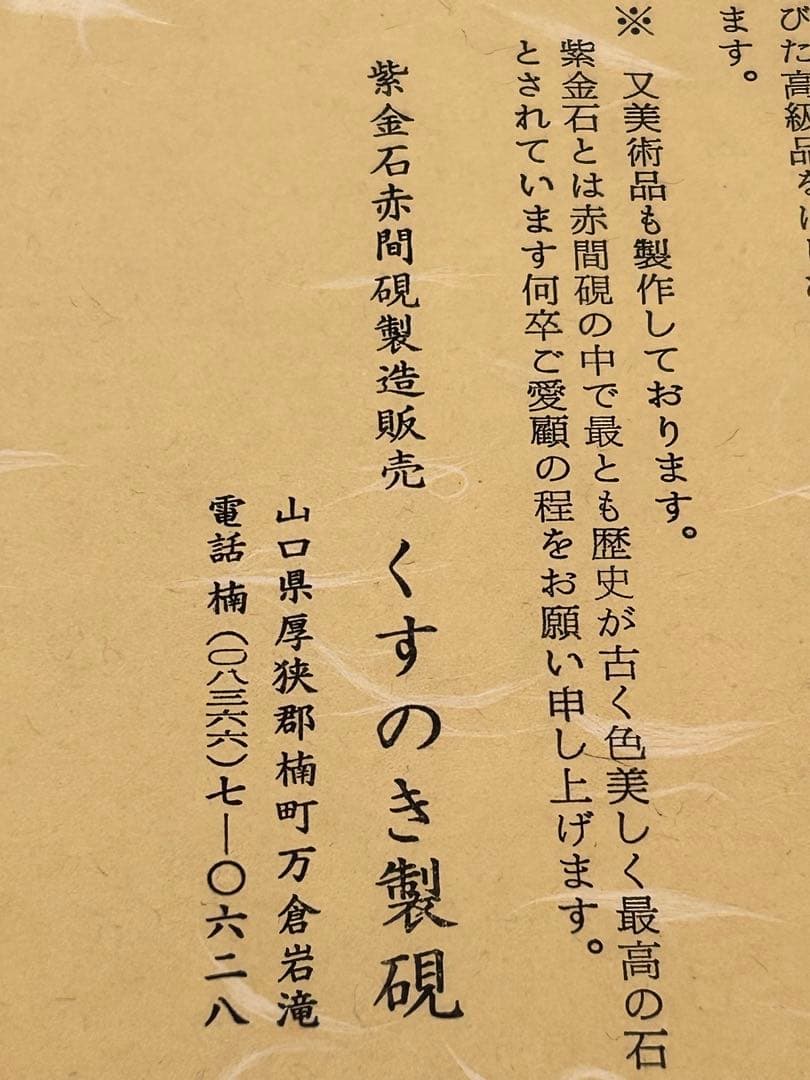 びた高級品を
ます。
※ 又美術品も製作しております。
紫金石とは赤間硯の中で最とも歴史が古く色美しく最高の石
とされています何卒ご愛顧の程をお願い申し上げます。
紫金石赤間硯製造販売 くすのき製硯
山口県厚狭郡楠町万倉岩滝
電話 楠(〇八三六六)七―〇六二八